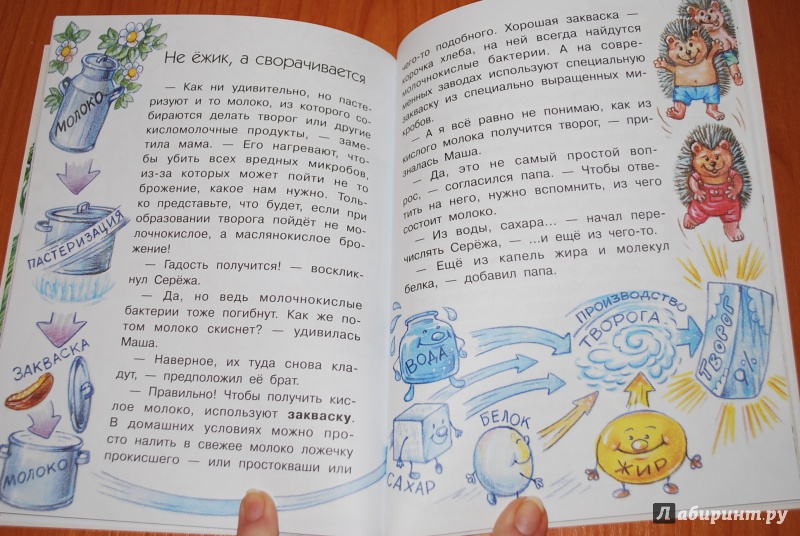 Не ёжик, а сворачивается
— Как ни удивительно, но пасте-
ризуют и то молоко, из которого со-
бираются делать творог или другие
кисломолочные продукты, — заме-
тила мама. — Его нагревают, что-
бы убить всех вредных микробов,
из-за которых может пойти не то
брожение, какое нам нужно. Толь-
ко представьте, что будет, если при
образовании творога пойдёт не мо-
лочнокислое, а маслянокислое бро-
жение!
— Гадость получится! — восклик-
нул Серёжа.
— Да, но ведь молочнокислые
бактерии тоже погибнут. Как же по-
том молоко скиснет? — удивилась
Маша.
— Наверное, их туда снова кла-
дут, — предположил её брат.
— Правильно! Чтобы получить кис-
лое молоко, используют закваску.
В домашних условиях можно про-
сто налить в свежее молоко ложечку
прокисшего — или простокваши или
МОЛОКО
ПАСТЕРИЗАЦИЯ
ЗАКВАСКА
МОЛОКО
чего-то подобного. Хорошая закваска —
корочка хлеба, на ней всегда найдутся
молочнокислые бактерии. А на совре-
менных заводах используют специальную
закваску из специально выращенных ми-
кробов.
— А я всё равно не понимаю, как из
кислого молока получится творог, — при-
зналась Маша.
— Да, это не самый простой воп-
рос, — согласился папа. — Чтобы отве-
тить на него, нужно вспомнить, из чего
состоит молоко.
— Из воды, сахара... — начал пере-
числять Серёжа, — ...и ещё из чего-то.
— Ещё из капель жира и молекул
белка, — добавил папа.
ПРОИЗВОДСТВО
ТВОРОГА
ТВОРОГ
9%
ВОДА
БЕЛОК
САХАР
ЖИР
Лабиринт.ру